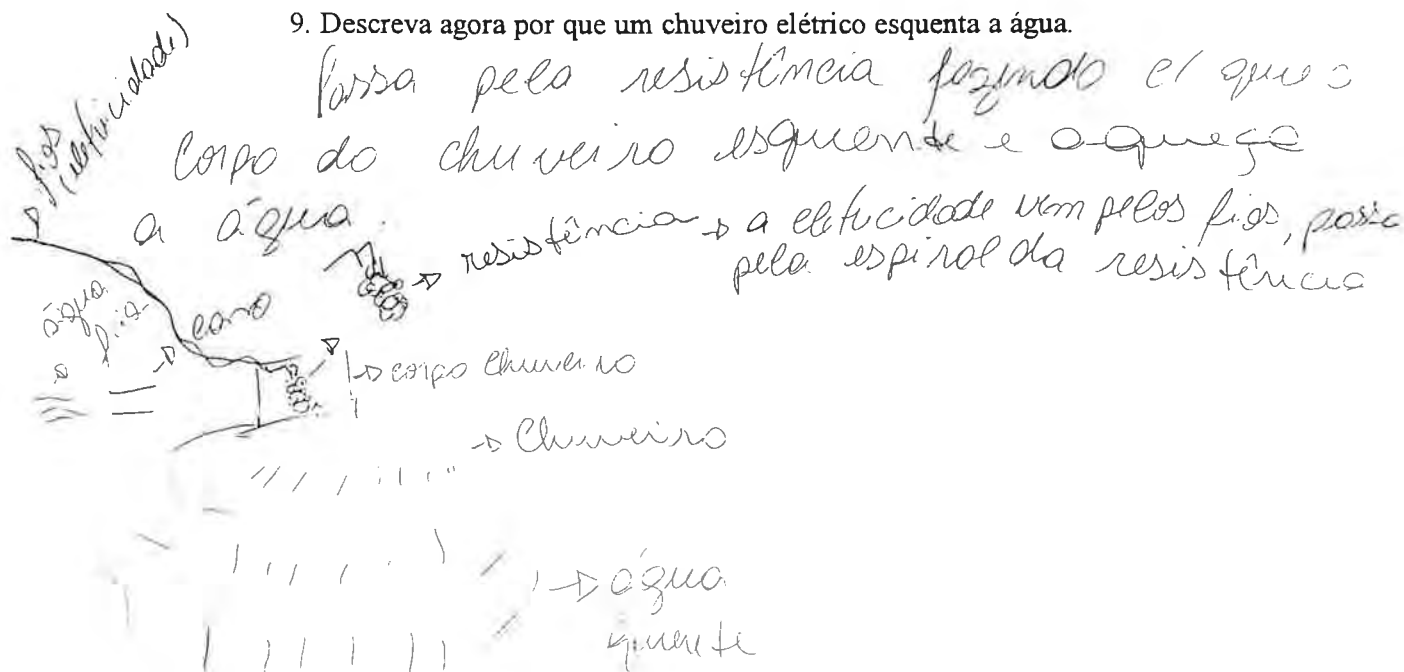 9. Descreva agora por que um chuveiro elétrico esquenta a água.
Passa pela resistência fazendo c/ que o
corpo do chuveiro esquente e aqueça
a água.
fios
(eletricidade)
resistência → a eletricidade vem pelos fios, passa
pela espiral da resistência
água
fria
cano
corpo chuveiro
Chuveiro
água
quente